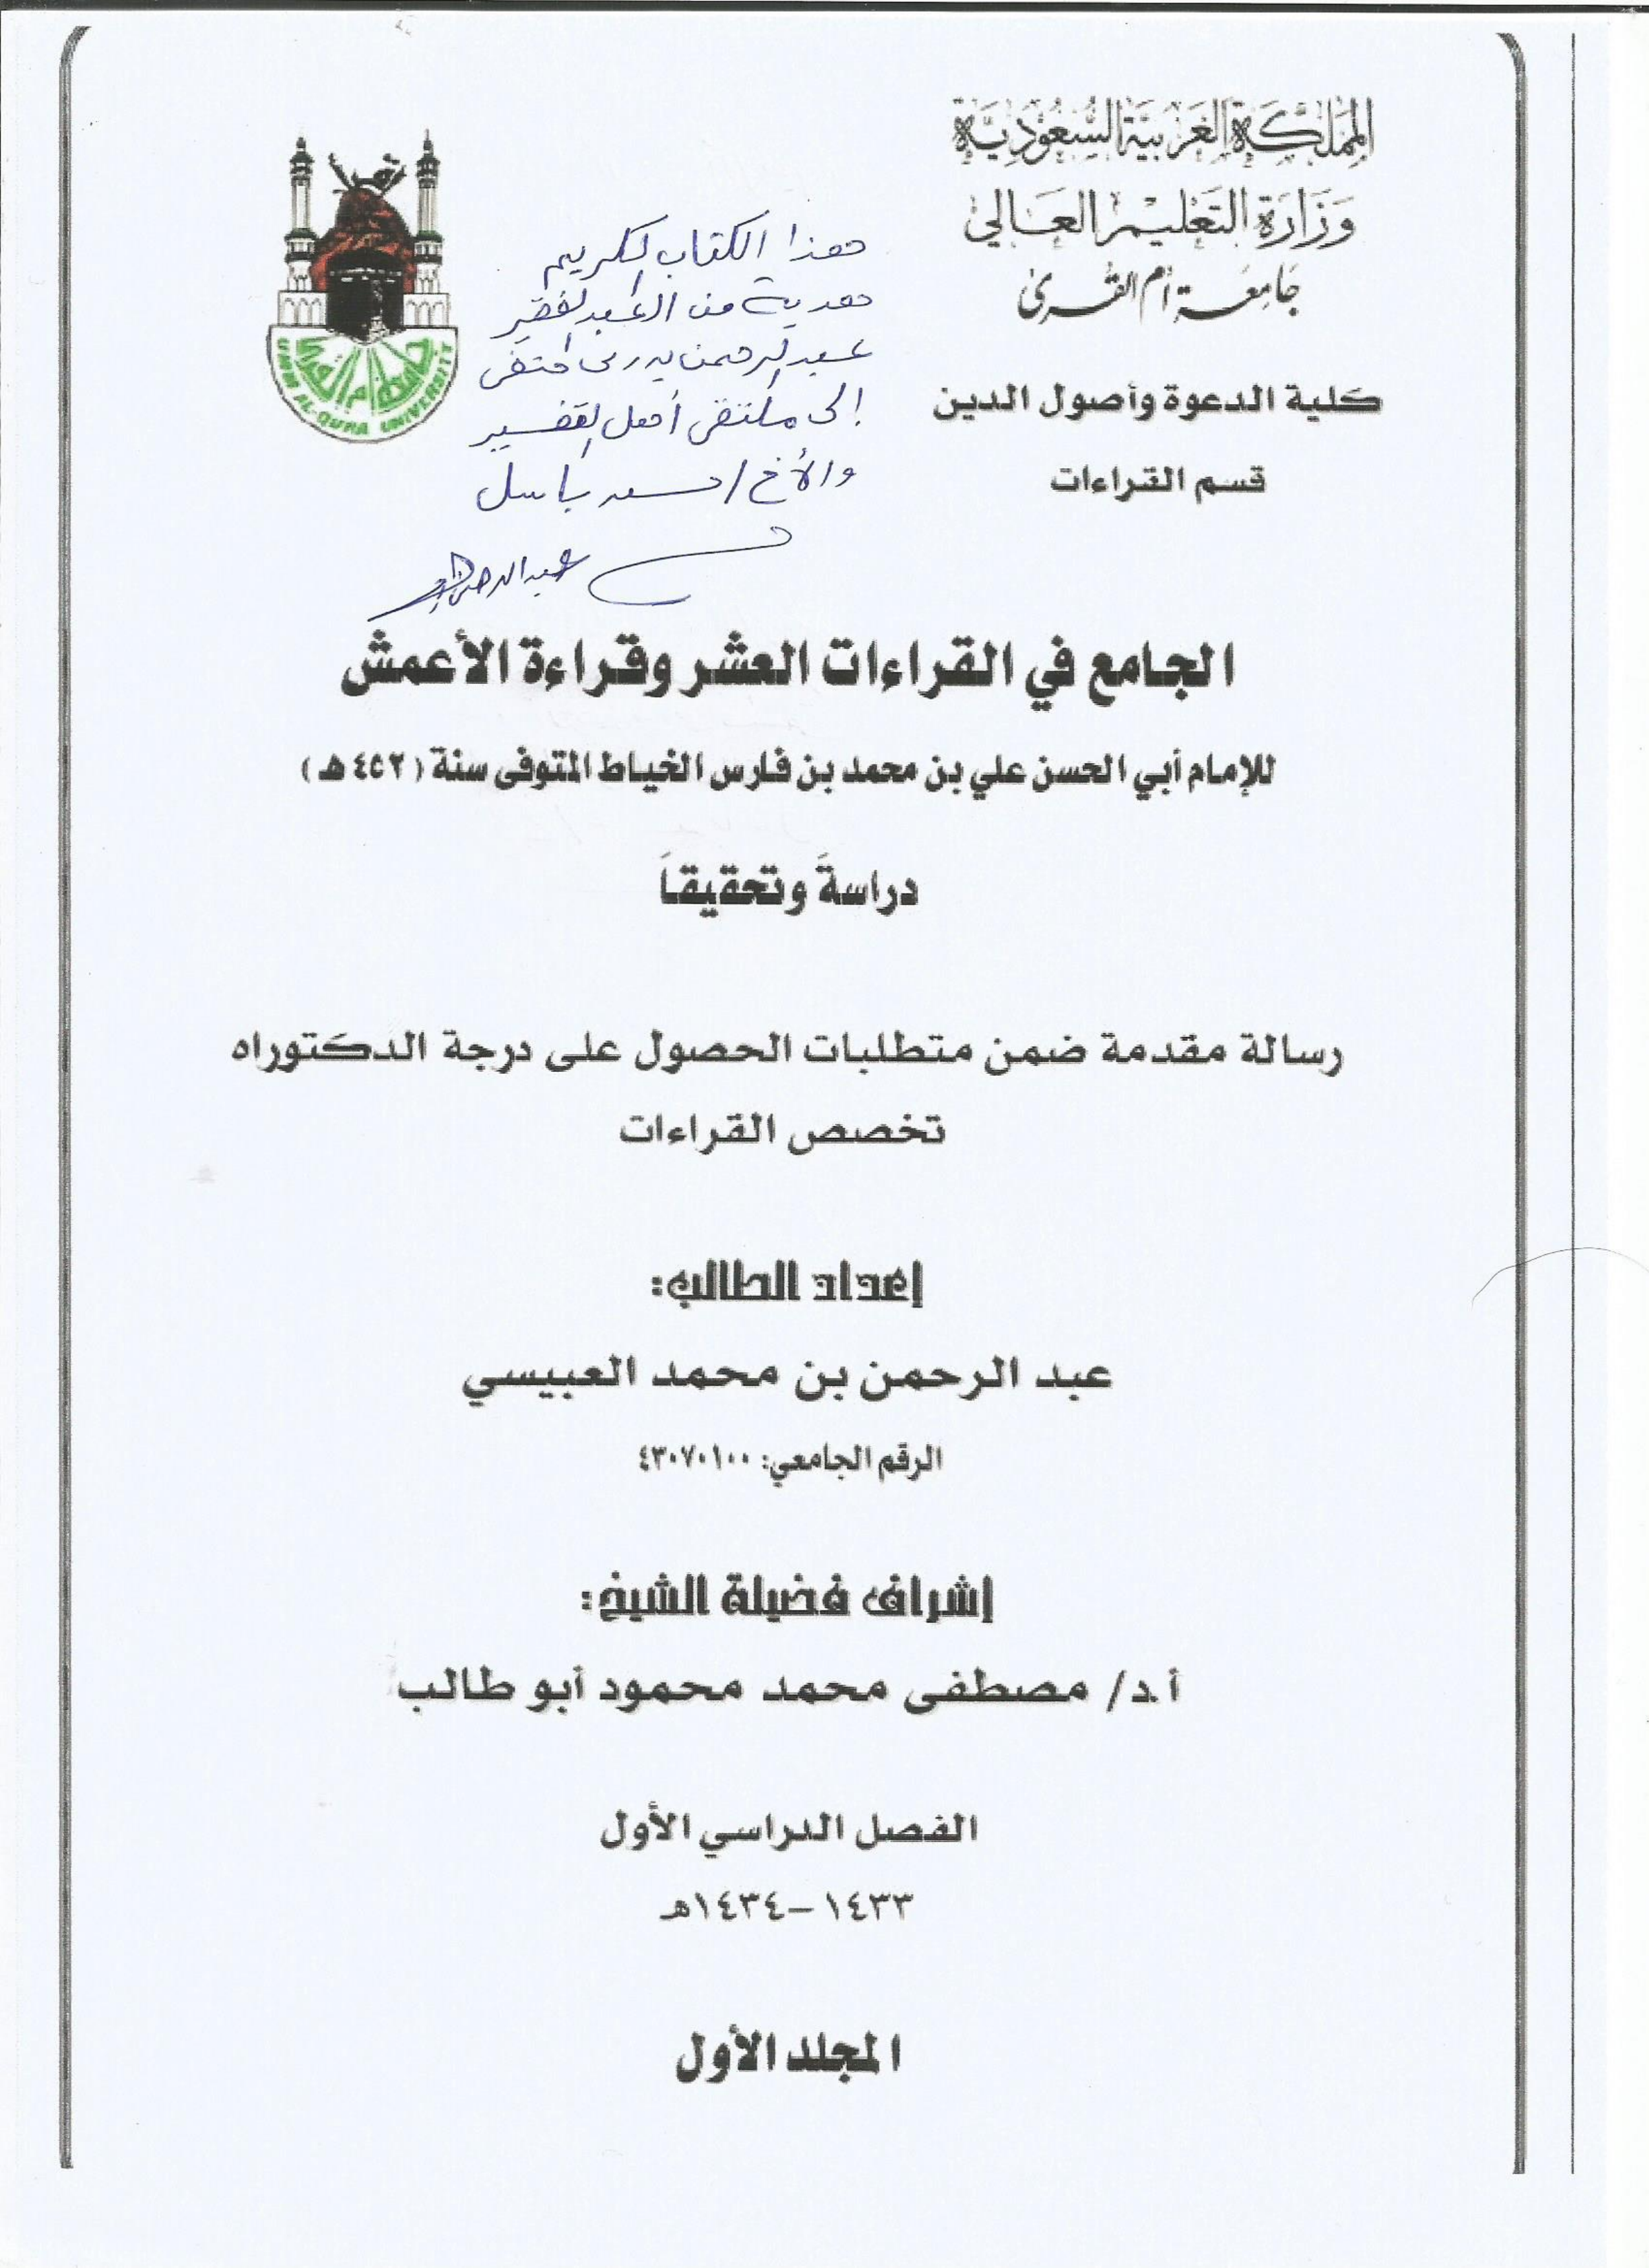 المملكة العربية السعودية
وزارة التعليم العالي
جامعة أم القرى
كلية الدعوة وأصول الدين
قسم القراءات
جامعة أم القرى
UMM AL-QURA UNIVERSITY
هذا الكتاب الكريم
هدية من العبد الفقير
عبد الرحمن
إلى ملتقى أهل التفسير
والأخ / سعد باسل
عبد الرحمن
الجامع في القراءات العشر وقراءة الأعمش
للإمام أبي الحسن علي بن محمد بن فارس الخياط المتوفى سنة (٤٥٢ هـ)
دراسةً وتحقيقاً
رسالة مقدمة ضمن متطلبات الحصول على درجة الدكتوراه
تخصص القراءات
إعداد الطالب:
عبد الرحمن بن محمد العبيسي
الرقم الجامعي: ٤٣٠٧٠١٠٠
إشراف فضيلة الشيخ:
أ.د/ مصطفى محمد محمود أبو طالب
الفصل الدراسي الأول
١٤٣٣–١٤٣٤هـ
المجلد الأول